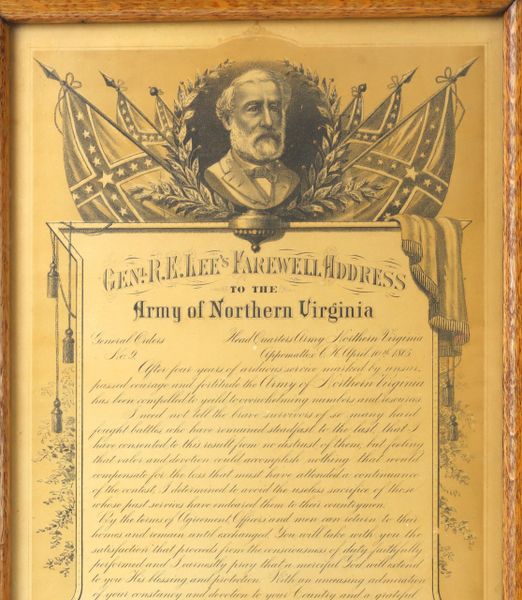 GENL. R. E. LEE'S FAREWELL ADDRESS
TO THE
Army of Northern Virginia
General Orders Head Quarters Army Northern Virginia
No. 9 Appomattox C.H. April 10th 1865
After four years of arduous service marked by unsur-
passed courage and fortitude the Army of Northern Virginia
has been compelled to yield to overwhelming numbers and resources
I need not tell the brave survivors of so many hard
fought battles who have remained steadfast to the last that I
have consented to this result from no distrust of them, but feeling
that valor and devotion could accomplish nothing that would
compensate for the loss that must have attended a continuance
of the contest, I determined to avoid the useless sacrifice of those
whose past services have endeared them to their countrymen.
By the terms of Agreement Officers and men can return to their
homes and remain until exchanged. You will take with you the
satisfaction that proceeds from the consciousness of duty faithfully
performed and I earnestly pray that a merciful God will extend
to you His blessing and protection. With an unceasing admiration
of your constancy and devotion to your Country and a grateful